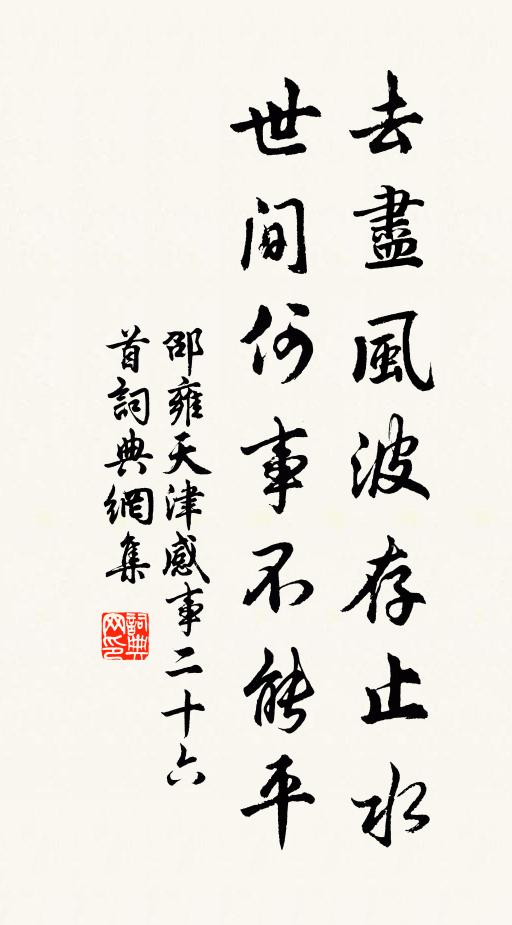 去盡風波存止水
世間何事不能平
邵雍天津感事二十六
首詞典網集
詞典
网印